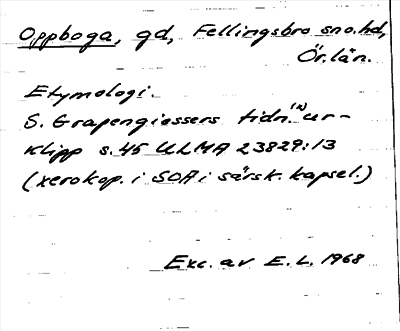 Oppboga, gd, Fellingsbro sn o. hd,
Ör. län.
Etymologi.
S. Grapengiessers tidn.ur-
klipp s. 45 ULMA 23829:13
(xerokop. i SOA i särsk. kapsel.)
Exc. av E. L. 1968